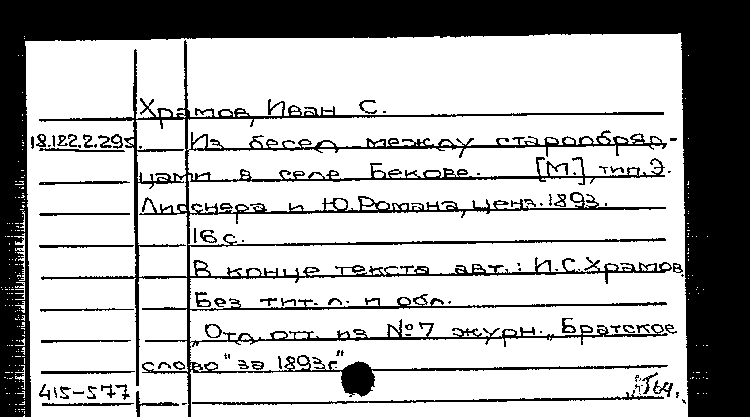 Храмов, Иван С.
18.122.2.295. Из бесед между старообряд-
цами в селе Бекове. [М.], тип. Э.
Лисснера и Ю. Романа, ценз. 1893.
16 с.
В конце текста авт.: И.С. Храмов
Без тит. л. и обл.
"Отд. отт. из №7 журн. "Братское
слово" за 1893г"
415-577